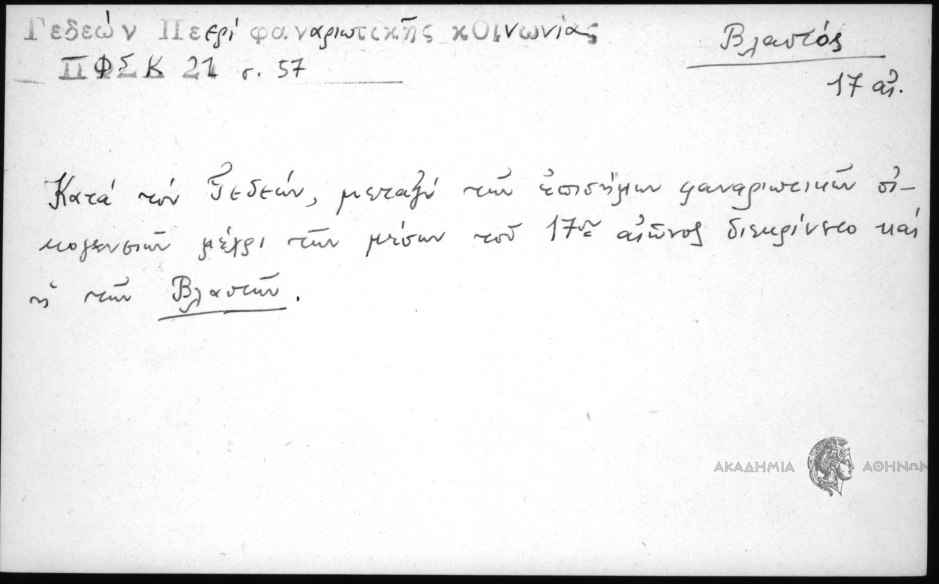 Γεδεών Περί φαναριωτικῆς κΟινωνίας
ΠΦΣΚ 21 σ. 57
Βλαστός
17 αἰ.
Κατά τόν Γεδεών, μεταξύ τῶν ἐπισήμων φαναριωτικῶν οἰ-
κογενειῶν μέχρι τῶν μέσων τοῦ 17ου αἰῶνος διεκρίνετο καί
ἡ τῶν Βλαστῶν.
ΑΚΑΔΗΜΙΑ ΑΘΗΝΩΝ